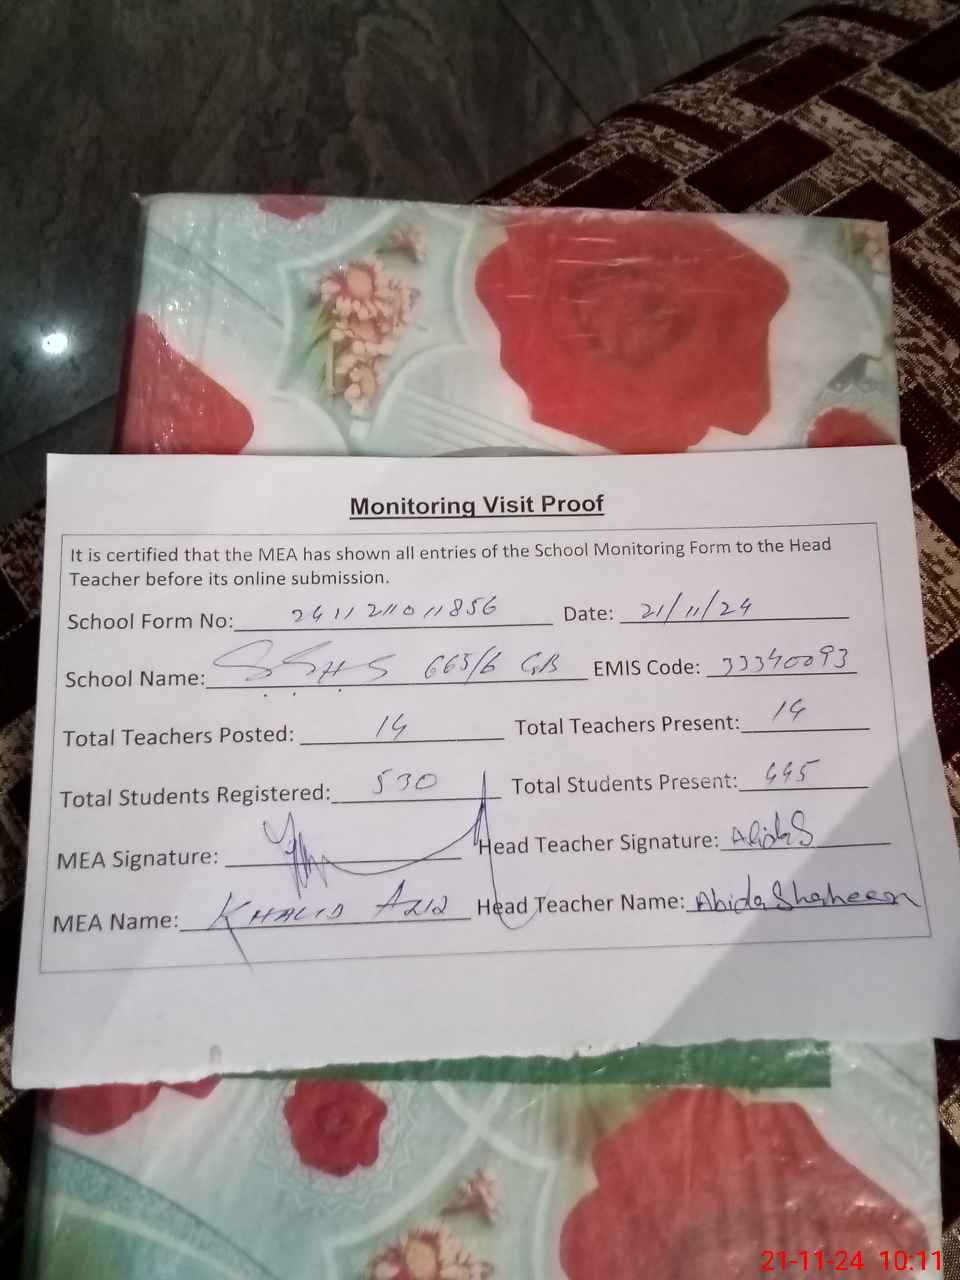 Monitoring Visit Proof
It is certified that the MEA has shown all entries of the School Monitoring Form to the Head
Teacher before its online submission.
School Form No: 2411211011856 Date: 21/11/24
School Name: SSHS 665/6 GB EMIS Code: 33340093
Total Teachers Posted: 14 Total Teachers Present: 14
Total Students Registered: 530 Total Students Present: 445
MEA Signature: Head Teacher Signature: AbidaS
MEA Name: KHALID AZIZ Head Teacher Name: Abida Shaheen
21-11-24 10:11